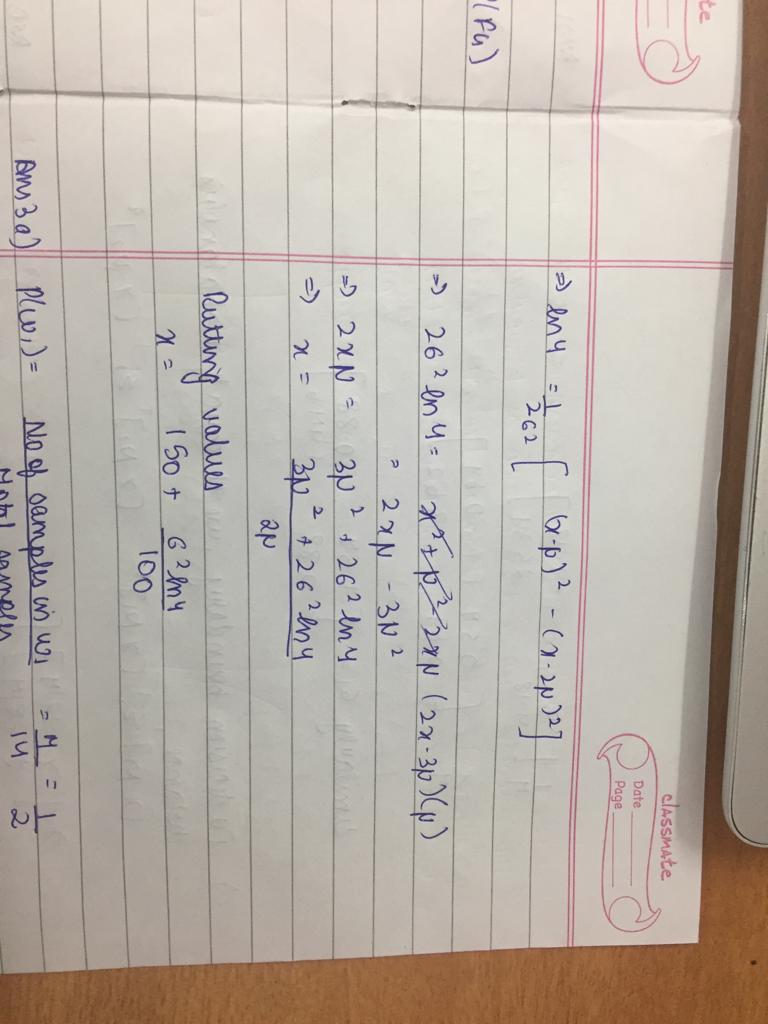 te
classmate
Date
Page
⇒ ln4 = 1/2σ2 [ (x-μ)² - (x-2μ)²]
P(F4)
⇒ 2σ² ln4 = x² + μ² - 2xμ (2x-3μ)(μ)
= 2xμ - 3μ²
⇒ 2xμ = 3μ² + 2σ² ln4
⇒ x = 3μ² + 2σ² ln4 / 2μ
Putting values
x = 150 + σ² ln4 / 100
Ans 3 a) P(ω₁) = No of samples in ω₁ / Total samples = 7/14 = 1/2